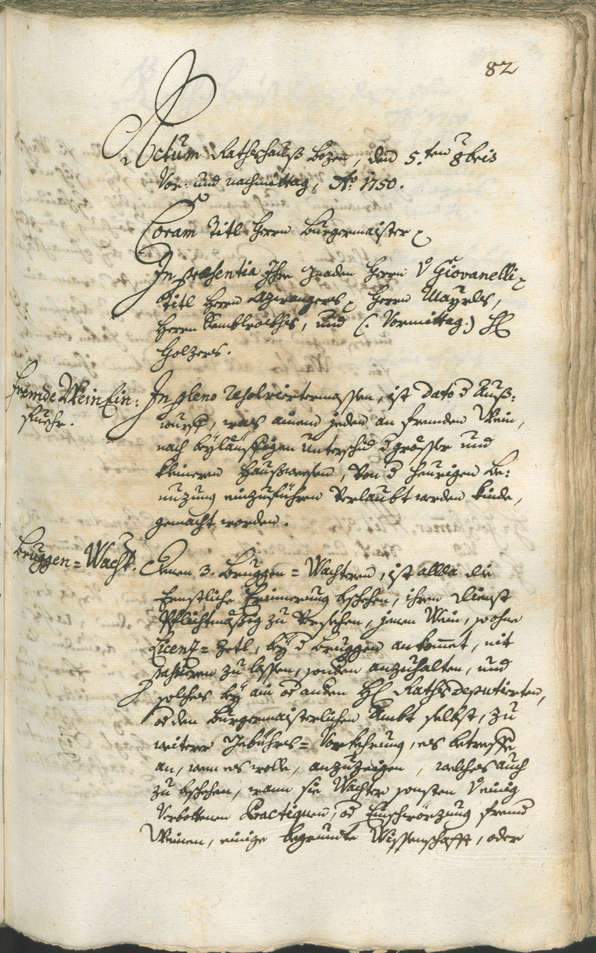 82
Actum Rathshauß Bozen, den 5.ten 8bris
Vor- und nachmittag, Ao. 1750.
Coram Titl. Herrn Burgermaister
In praesentia Ihro Gnaden Herrn v Giovanelli
Titl Herrn Herrn Mayrls,
Herrn und (: Vormittag:) H
Holzers.
Fremde Wein Ein:
Fuehr.
In pleno resolviertermassen, ist dato d Auß:
wurf, was ainem jeden an fremden Wein,
nach beyläuffigen unterschid d grösser und
kleineren Haußwesen, von d heurigen Be:
nuzung einzuführen verlaubt werden künde,
gemacht worden.
Bruggen=Wacht.
Denen 3. Bruggen=Wachtern, ist allda die
Ernstliche Erinnerung bschehen, ihren Dienst
Pflichtmässig zu versehen, jenen Wein, so ohne
Licenz=Zetl, bey d Bruggen ankommet, nit
passieren zu lassen, sonder anzuhalten, und
solches bey ain od andern H Raths deputierten,
od den Burgermaisterlichen Ambt selbst, zu
weiterer Gebührs=Vorkehrung, es betreffe
an, wem es wolle, anzuzaigen, welches auch
zu bschehen, wann sie Wachter sonsten
Verbottenen Practiquen, od Einschwörzung fremd
Weinen, einige begründte Wissenschafft, oder